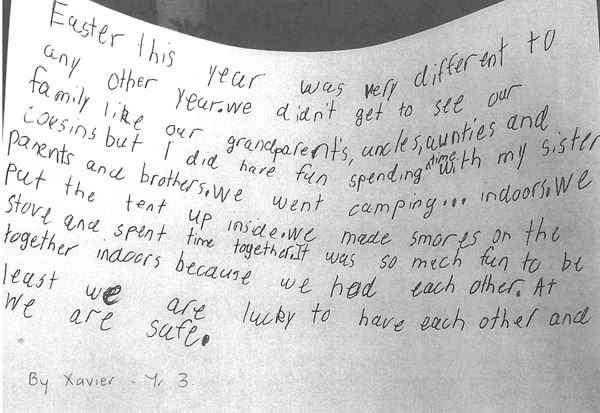 Easter this year was very different to
any other year. We didn't get to see our
family like our grandparent's, uncles, aunties and
cousins but I did have fun spending time with my sister
parents and brothers. We went camping... indoors. We
put the tent up inside. We made smores on the
stove and spent time together. It was so much fun to be
together indoors because we had each other. At
least we are lucky to have each other and
we are safe.
By Xavier - Yr 3.